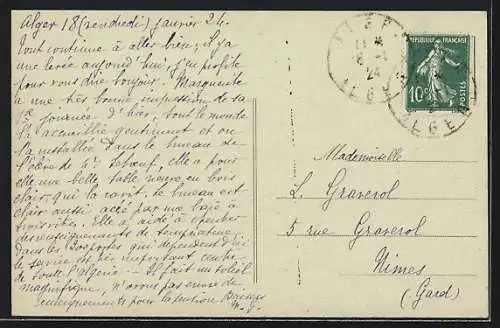 Alger 18 (vendredi) janvier 24.
Tout continue à aller bien; il y a
une levée aujourd'hui, j'en profite
pour vous dire bonjour. Marguerite
a une très bonne impression de sa
1re journée d'hier, tout le monde
l'a accueillie gentiment et on
l'a installée dans le bureau de
elle a pour
elle une belle table neuve en bois
clair qui la ravit. Le bureau est
clair aussi, par une baie à
trois vitres. Elle a aidé à
des renseignements de température,
dans les que dépendent d'ici
le service est très important centre
de toute l'Algérie — Il fait un soleil
magnifique, n'avons pas encore de
renseignements pour la pension Baisers
M. J.
ALGER
11
18 -1
24
ALGER
REPUBLIQUE FRANÇAISE
10c
POSTES
ALGER
Mademoiselle
L. Graverol
5 rue Graverol
Nimes
(Gard)